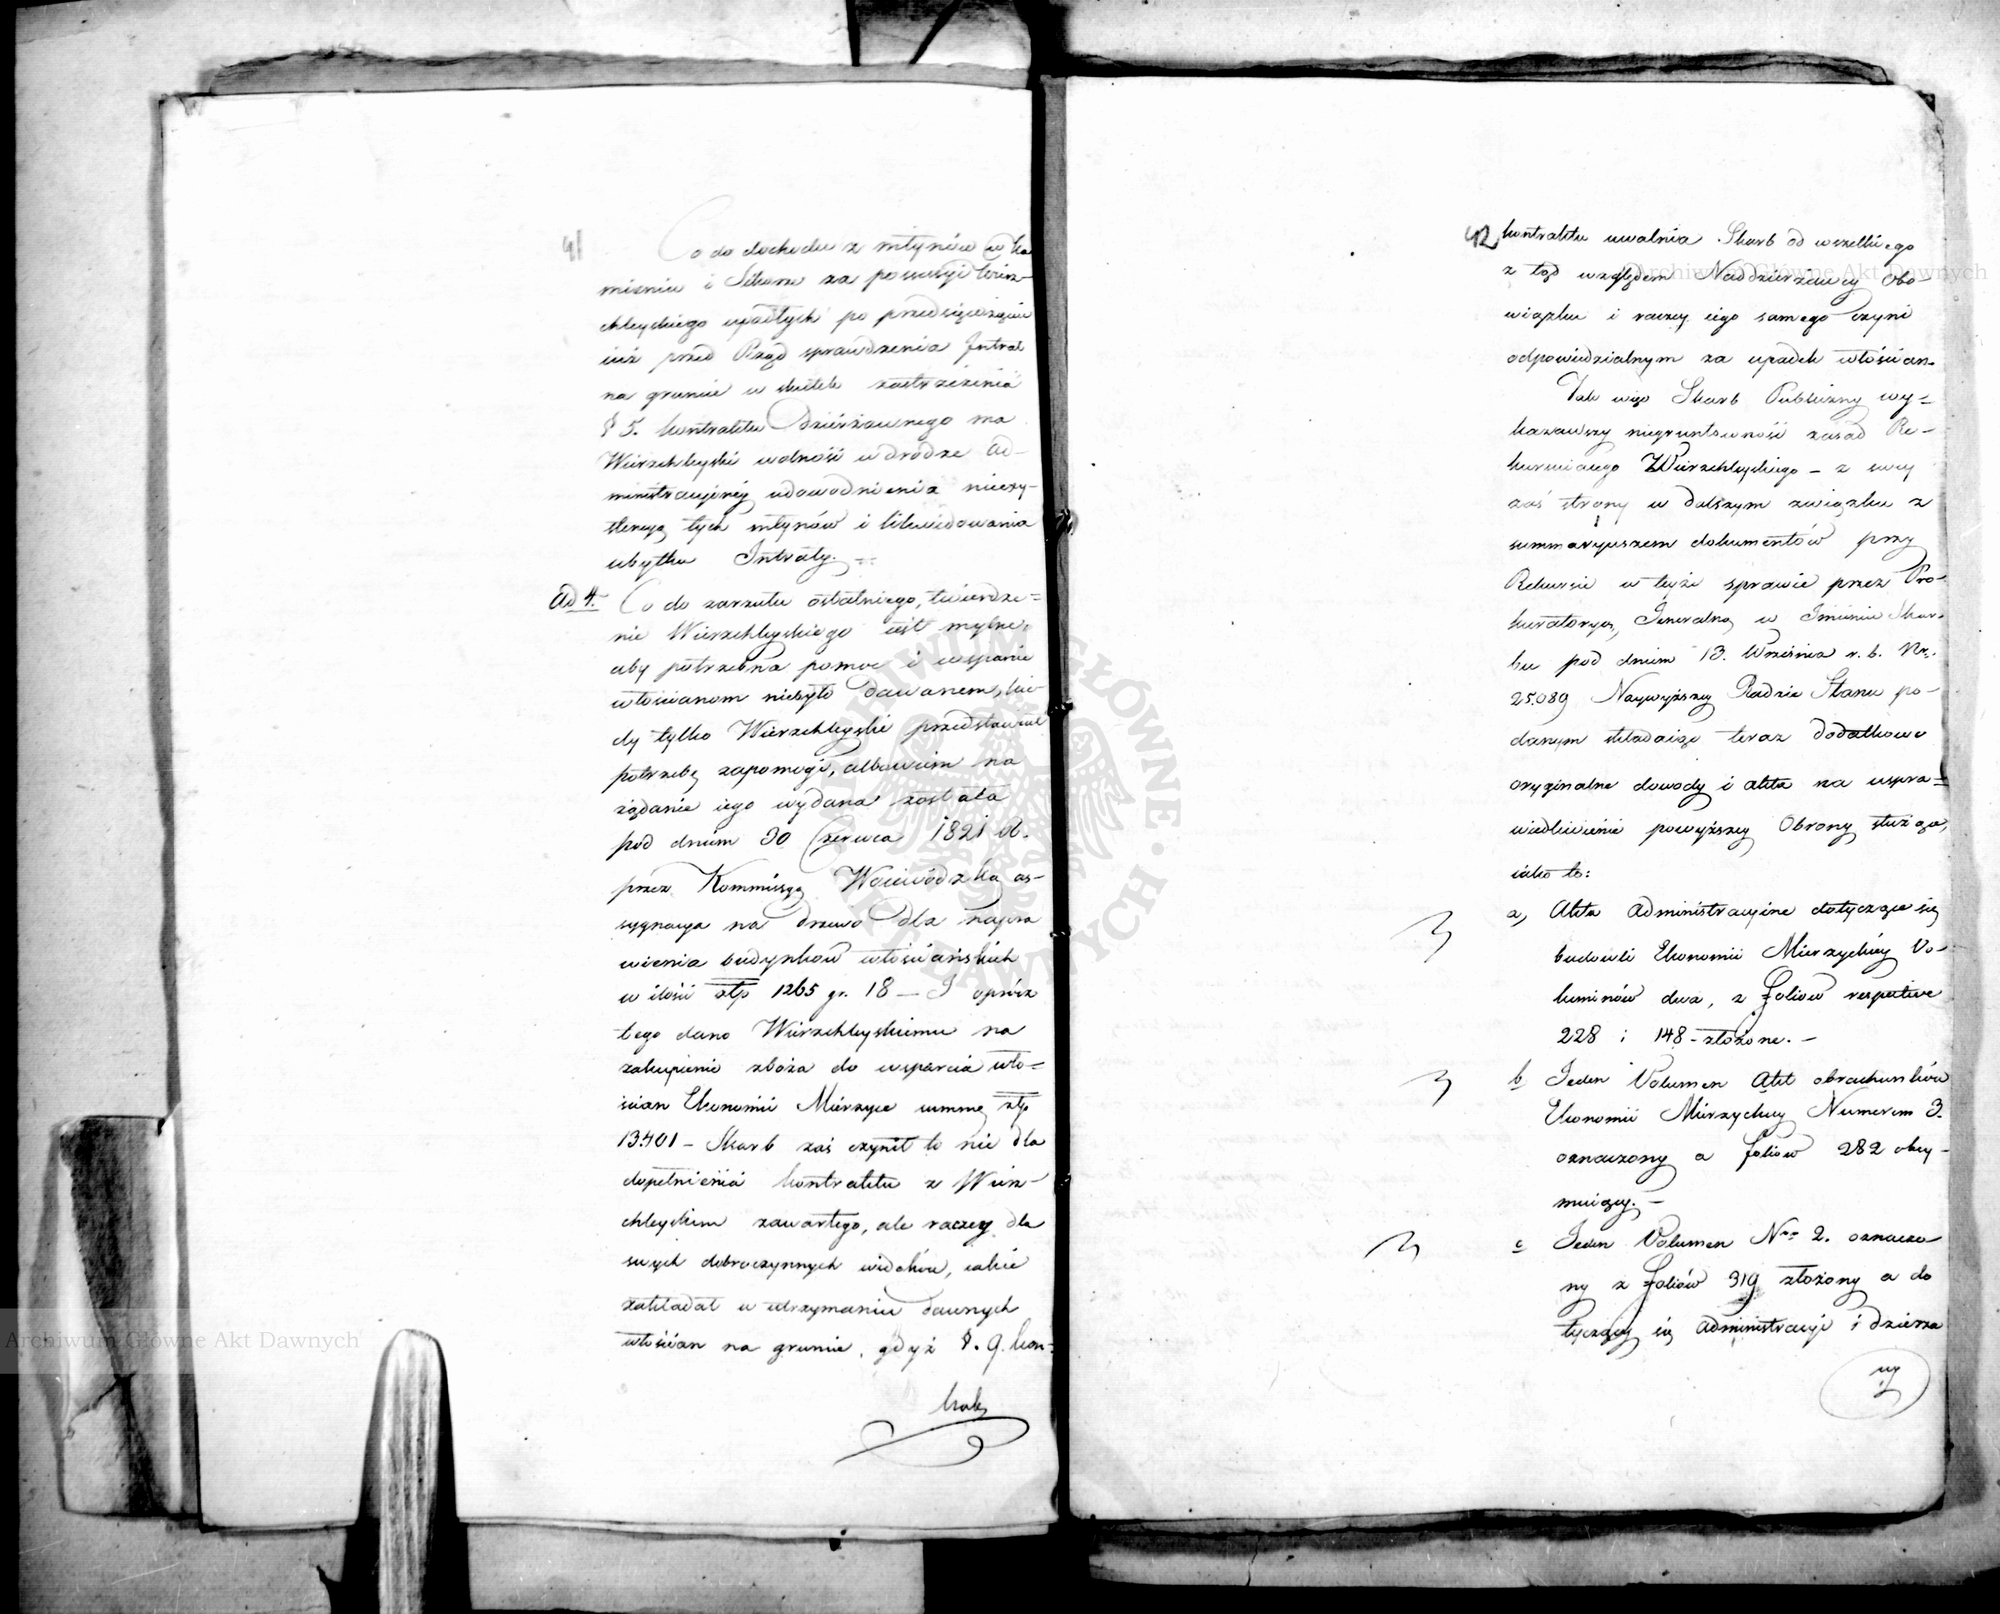 41
Co do dochodu z młynów w Ka
mieniu i Sikorz za possessyi Wierz-
chleyskiego upadłych po przedsięwzięciu
iuż przed Rząd sprawdzenia Intrat
na gruncie w skutek zastrzeżenia
§ 5. kontraktu Dzierżawnego ma
Wierzchleyski wolność w drodze ad-
ministracyjnéy udowodnienia nieexy-
stencyą tych młynów i likwidowania
ubytku Intraty. —
Ad 4. Co do zarzutu ostatniego, twierdze=
nie Wierzchleyskiego iest mylne,
aby potrzebna pomoc i wsparcie
włościanom niebyło dawanem, kie-
dy tylko Wierzchleyski przedstawiał
potrzebę zapomogi, albowiem na
żądanie iego wydana została
pod dniem 30 Czerwca 1821 r.
przez Kommissyą Woiewódzką as-
sygnacya na drzewo dla napra
wienia budynków włościańskich
w ilości złp 1265 gr. 18 — I oprócz
tego dano Wierzchleyskiemu na
zakupienie zboża do wsparcia wło=
ścian Ekonomii Mierzyce summę złp
13401 — Skarb zaś czynił to nie dla
dopełnienia kontraktu z Wierz-
chleyskim zawartego, ale raczey dla
swych dobroczynnych widoków, iakie
zakładał w utrzymaniu dawnych
włościan na gruncie, gdyż §. 9. kon-
traktu
42 kontraktu uwalnia Skarb od wszelkiego
z tąd względem Naddzierżawcy obo-
wiązku i raczey iego samego czyni
odpowiedzialnym za upadek włościan.
Tak więc Skarb Publiczny wy=
kazawszy niegruntowność zasad Re-
kurruiącego Wierzchleyskiego — z swey
zaś strony w dalszym związku z
summaryuszem dokumentów przy
Rekursie w teyże sprawie przez Pro-
kuratoryą Jeneralną w Imieniu Skar-
bu pod dniem 13. Września r. b. Nr.
25089 Naywyższey Radzie Stanu po-
danym składaiąc teraz dodatkowo
oryginalne dowody i akta na uspra=
wiedliwienie powyższey Obrony służące,
iako to:
a, Akta administracyine dotyczące się
budowli Ekonomii Mierzyckiéy Vo-
luminów dwa, z foliów respective
228 i 148 - złożone. —
b Jeden Volumen Akt obrachunków
Ekonomii Mierzyckiey Numerem 3.
oznaczony a foliów 282 obey-
muiący. —
c Jeden Volumen Nro 2. oznaczo
ny z foliów 319 złożony a do
tyczący się administracyi i dzierża
wy
Archiwum Główne Akt Dawnych
Archiwum Główne Akt Dawnych
ARCHIWUM GŁÓWNE AKT DAWNYCH